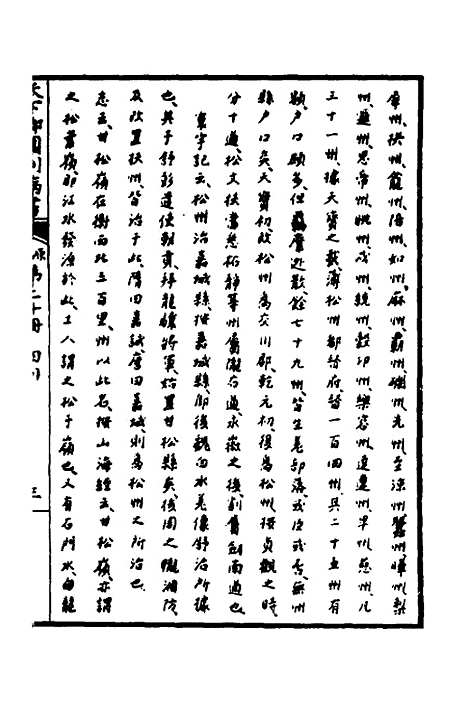 摩州、扶州、龍州、陪州、如州、麻州、霸州、礀州、光州、至涼州、蠶州、曄州、梨
州、邏州、思帝州、州、成州、統州、穀邛州、樂容州、達違州、卑州、慈州、凡
三十一州、據天寶之載簿松州都督府、督一百四州、其二十五州有
額戶口頗多、但羈縻逃散、餘七十九州、皆生羌部落、或臣或否、無州
縣戶口矣、天寶初、改松州為交川郡、乾元初、復為松州、按貞觀之時
分十道、松文扶當悉柘靜等州屬隴右道、永徽之後、割屬劍南道也、
寰宇記云、松州治嘉城縣、按嘉城縣、即後魏白水羌像舒治所據
也、其子舒彭遣使朝貢、拜龍驤將軍、始置甘松縣矣、後周之龍涸防、
及改置扶州、皆治于此、隋曰嘉誠、唐曰嘉城、則為松州之所治也、
志云、甘松嶺在衛西北三百里、州以此名、按山海經云、甘松嶺、亦謂
之松葉嶺、即江水發源於此、土人謂之松子嶺也、又有石門水、白龍
天下郡國利病書 原第二十冊 四川 三